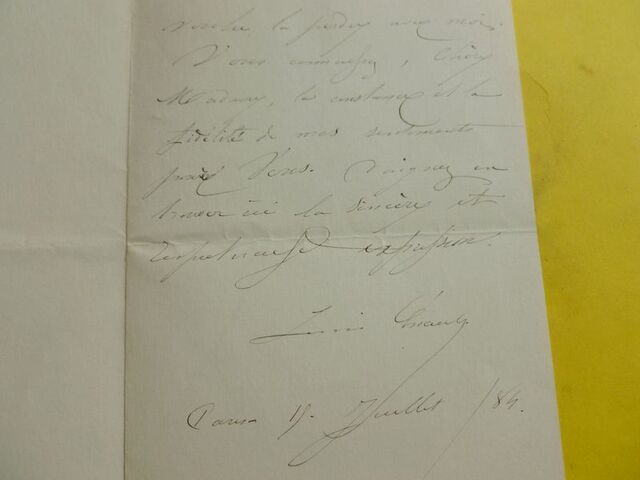 vouliez la garder avec moi.
Vous connaissez, Chère
Madame, la constance et la
fidélité de mes sentiments
pour Vous. Daignez en
trouver ici la sincère et
respectueuse expression.
Louis Énault
Paris 15. Juillet /84.